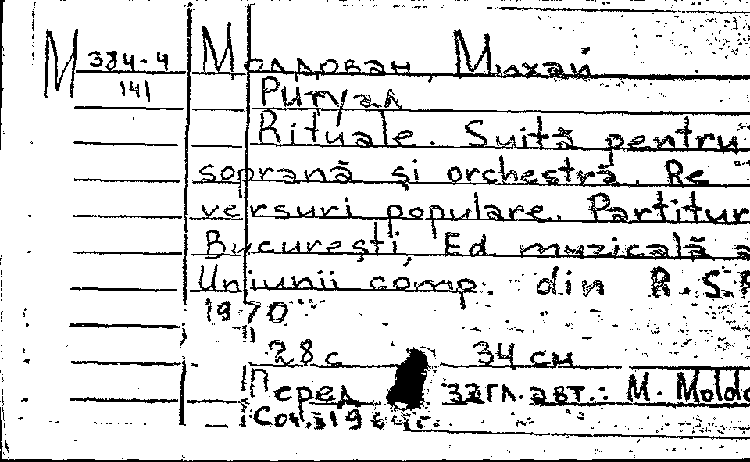 М 384-4 Молдован, Михай
141 Ритуал
Rituale. Suită pentru
soprană și orchestră. Re
versuri populare. Partitur
București, Ed. muzicală a
Uniunii comp. din R.S.R
1970
28 с 34 см
Перед загл. авт.: M. Moldo
Соч. 1964 г.